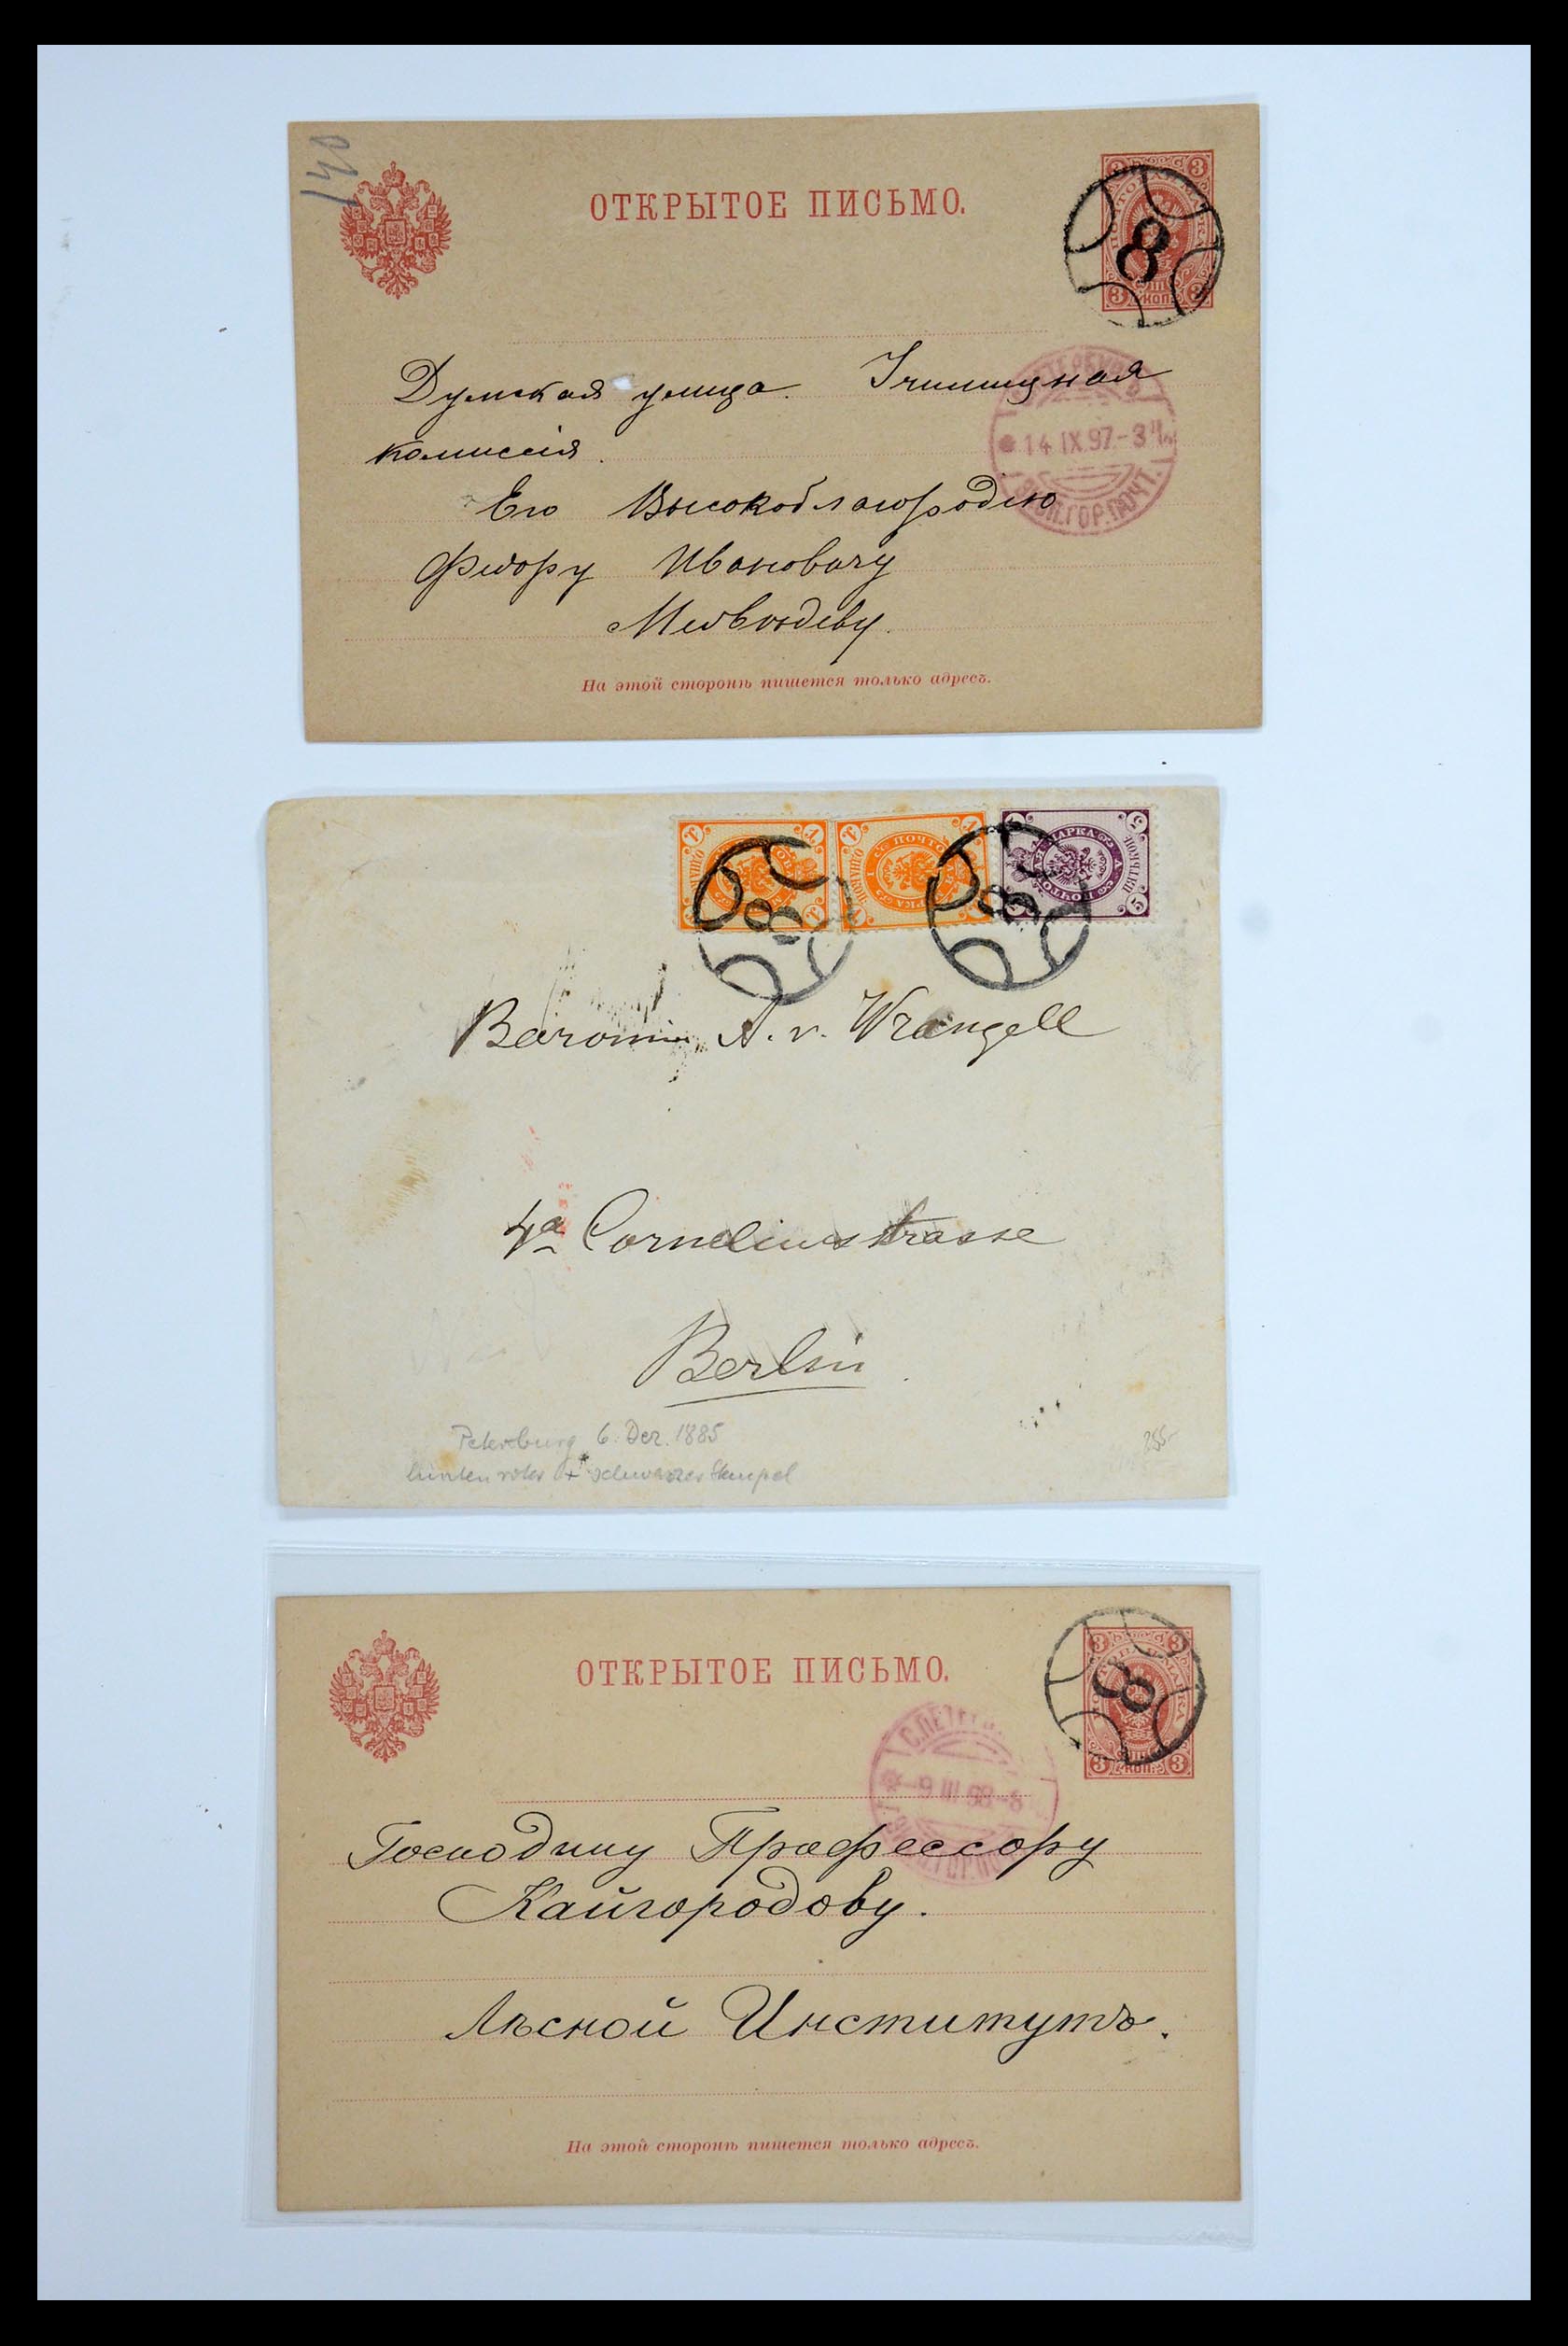 140
ОТКРЫТОЕ ПИСЬМО.
3 3
8
3 КОП. 3
Думская улица. Училищная
14 IX 97-3 Ч.
коммиссія.
ГОР.ПОЧТ.
Его Высокоблагородію
Федору Ивановичу
Медвѣдеву.
На этой сторонѣ пишется только адресъ.
8 8
Baronin A. v. Wrangell
4a Corneliusstrasse
Berlin
Petersburg 6. Dez. 1885
hinten roter + schwarzer Stempel
255-
ОТКРЫТОЕ ПИСЬМО.
3 3
8
3 КОП. 3
С.ПЕТЕР
-9 III 98-8
Господину Профессору
Кайгородову.
Лѣсной Институтъ.
На этой сторонѣ пишется только адресъ.